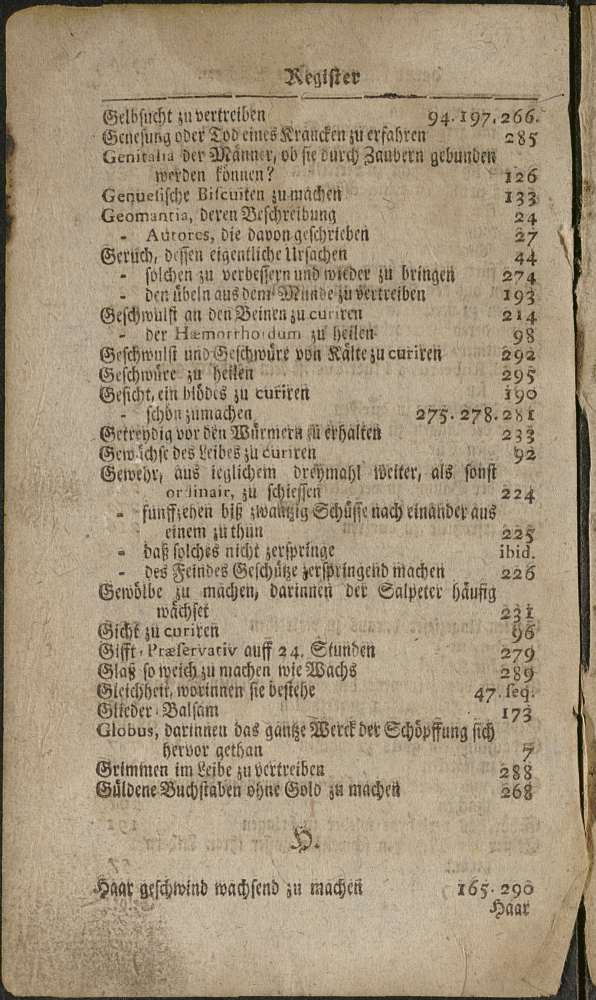 Register
Gelbsucht zu vertreiben 94. 197. 266.
Genesung oder Tod eines Krancken zu erfahren 285
Genitalia der Männer, ob sie durch Zaubern gebunden
werden können? 126
Genuesische Biscuiten zu machen 133
Geomantia, deren Beschreibung 24
- Autores, die davon geschrieben 27
Geruch, dessen eigentliche Ursachen 44
- solchen zu verbessern und wieder zu bringen 274
- den übeln aus dem Munde zu vertreiben 193
Geschwulst an den Beinen zu curiren 214
- der Hæmorrhoidum zu heilen 98
Geschwulst und Geschwüre von Kälte zu curiren 292
Geschwüre zu heilen 295
Gesicht, ein blödes zu curiren 190
- schön zumachen 275. 278. 281
Getreydig vor den Würmern zu erhalten 233
Gewächse des Leibes zu curiren 92
Gewehr, aus ieglichem dreymahl weiter, als sonst
ordinair, zu schiessen 224
- funffzehen biß zwantzig Schüsse nach einander aus
einem zu thun 225
- daß solches nicht zerspringe ibid.
- des Feindes Geschütze zerspringend machen 226
Gewölbe zu machen, darinnen der Salpeter häufig
wächset 231
Gicht zu curiren 96
Gifft-Præservativ auff 24. Stunden 279
Glaß so weich zu machen wie Wachs 289
Gleichheit, worinnen sie bestehe 47. seq.
Glieder-Balsam 173
Globus, darinnen das gantze Werck der Schöpffung sich
hervor gethan 7
Grimmen im Leibe zu vertreiben 288
Güldene Buchstaben ohne Gold zu machen 268
H.
Haar geschwind wachsend zu machen 165. 290
Haar